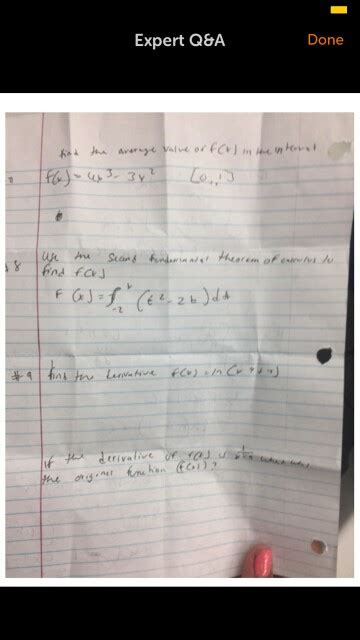 Expert Q&A
Done
find the average value of f(x) in the interval
f(x) = 4x³ - 3x² [0, 1]
8 Use the second fundamental theorem of calculus to
find F(x)
F (x) = ∫ -2 x (t² - 2t) dt
#9 find the derivative f(x) = ln (x
If the derivative of f(x) is
the original function (f(x))?